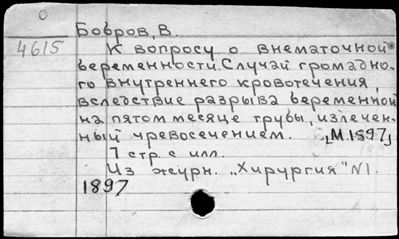 Бобров, В.
4615
К вопросу о внематочной
беременности. Случай громадно-
го внутреннего кровотечения,
вследствие разрыва беременной
на пятом месяце трубы, излечен-
ный чревосечением. [М. 1897]
7 стр. с илл.
Из журн. „Хирургия" N1.
1897